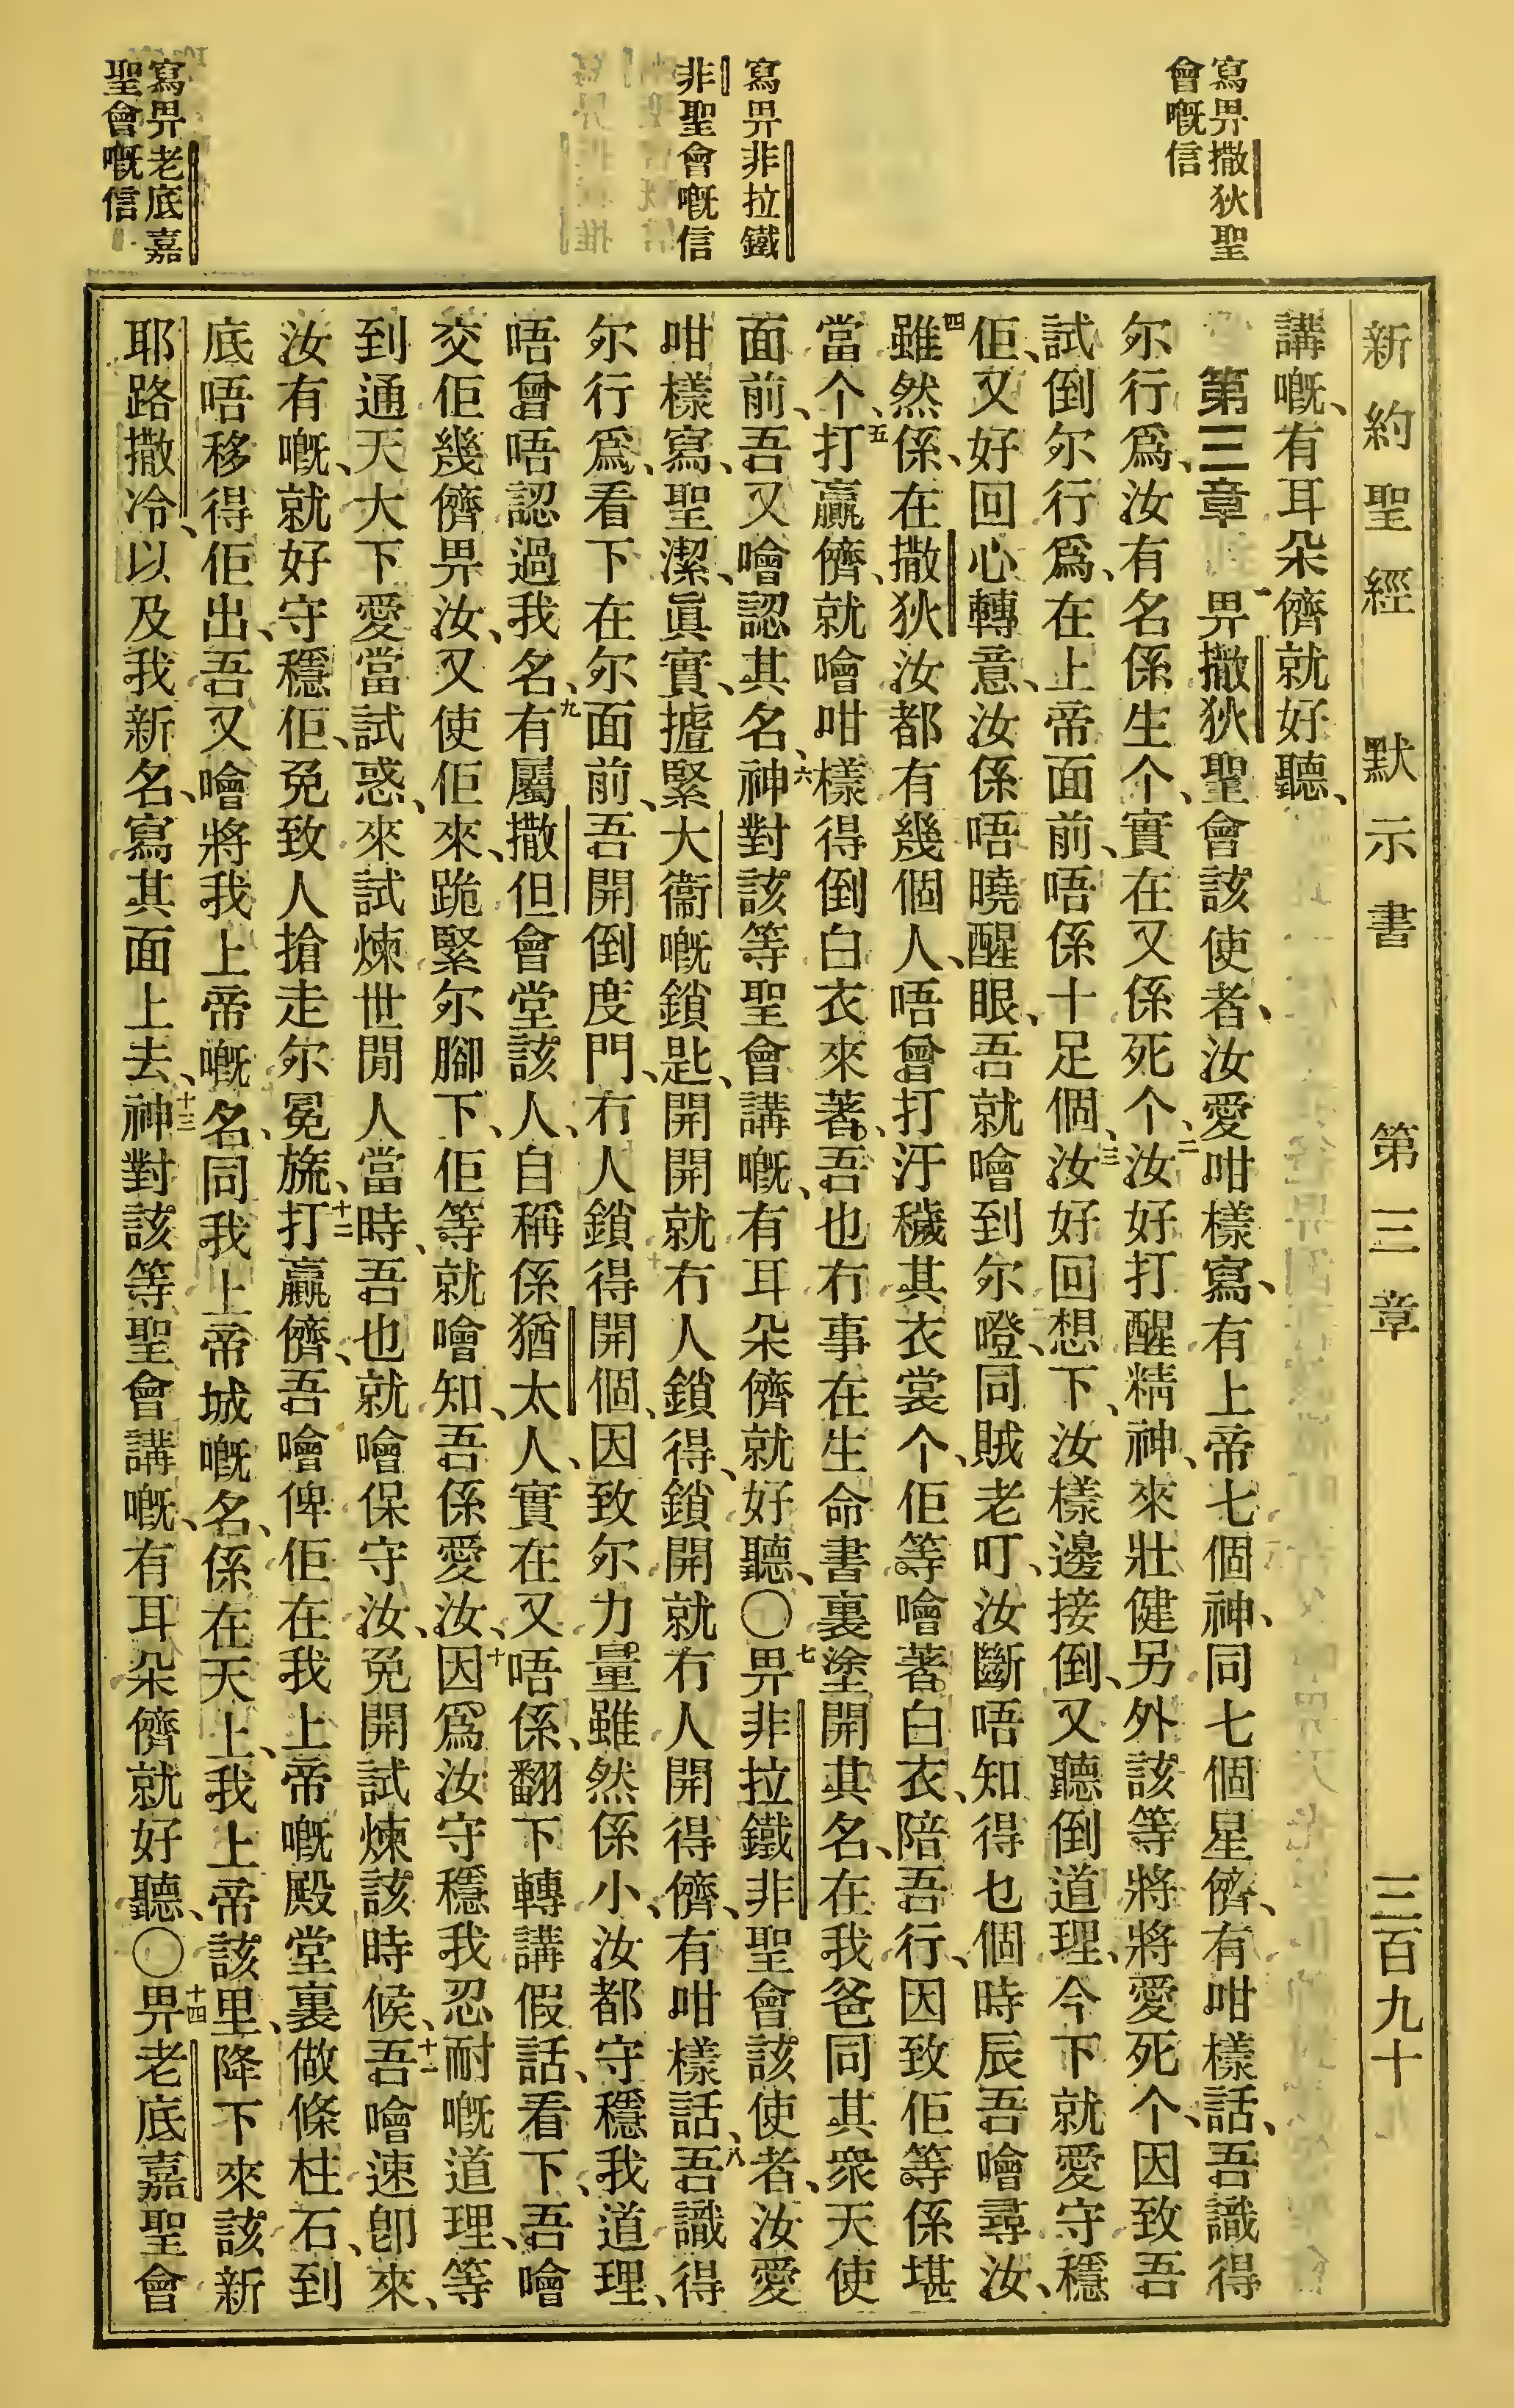 新約聖經 默示書 第三章 三百九十九
寫畀撒狄聖
會嘅信
寫畀非拉鐵
非聖會嘅信
寫畀老底嘉
聖會嘅信
講嘅、有耳朵儕就好聽、
第三章 一畀撒狄聖會該使者、汝愛咁樣寫、有上帝七個神、同七個星儕、有咁樣話、吾識得
尔行爲、汝有名係生个、實在又係死个、二汝好打醒精神、來壯健另外該等將將愛死个、因致吾
試倒尔行爲、在上帝面前、唔係十足個、三汝好回想下、汝樣邊接倒、又聽倒道理、今下就愛守穩
佢、又好回心轉意、汝係唔曉醒眼、吾就噲到尔嶝、同賊老叮、汝斷唔知得乜個時辰吾噲尋汝、
四雖然係、在撒狄汝都有幾個人、唔曾打汙穢其衣裳个、佢等噲著白衣、陪吾行、因致佢等係堪
當个、五打贏儕、就噲咁樣得倒白衣來著、吾也冇事在生命書裏塗開其名、在我爸同其衆天使
面前、吾又噲認其名、六神對該等聖會講嘅、有耳朵儕就好聽、〇七畀非拉鐵非聖會該使者、汝愛
咁樣寫、聖潔、眞實、摣緊大衞嘅鎖匙、開開就冇人鎖得、鎖開就冇人開得儕、有咁樣話、八吾識得
尔行爲、看下在尔面前、吾開倒度門、冇人鎖得開個、因致尔力量雖然係小、汝都守穩我道理、
唔曾唔認過我名、九有屬撒但會堂該人、自稱係猶太人、實在又唔係、翻下轉講假話、看下、吾噲
交佢幾儕畀汝、又使佢來、跪緊尔腳下、佢等就噲知、吾係愛汝、十因爲汝守穩我忍耐嘅道理、等
到通天大下愛當試惑、來試煉世閒人當時、吾也就噲保守汝、免開試煉該時候、十一吾噲速卽來、
汝有嘅、就好守穩佢、免致人搶走尔冕旒、十二打贏儕、吾噲俾佢在我上帝嘅殿堂裏做條柱石、到
底唔移得佢出、吾又噲將我上帝嘅名、同我上帝城嘅名、係在天上、我上帝該里、降下來該新
耶路撒冷、以及我新名、寫其面上去、十三神對該等聖會講嘅、有耳朵儕就好聽、〇十四畀老底嘉聖會